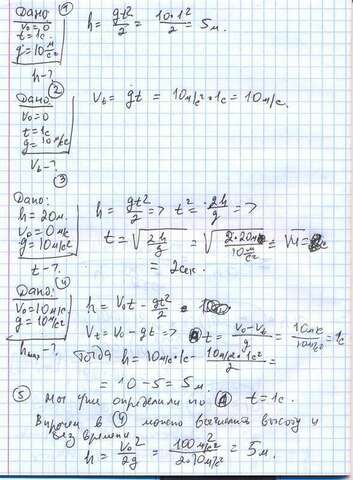 Дано ①
V₀=0
t=1c.
g=10 м/с²
h = gt²/2 = 10·1²/2 = 5м.
h-?
②
Дано
V₀=0
t=1c
g=10м/с²
Vt = gt = 10м/с²·1c = 10м/с.
Vt-?
③
Дано:
h=20м.
V₀=0м/с
g=10м/с²
h = gt²/2 => t² = 2h/g =>
t = √(2h/g) = √(2·20м/10м/с²) = √4 =
= 2сек.
t-?
Дано: ④
V₀=10м/с
g=10м/с²
h = V₀t - gt²/2
Vt = V₀ - gt => t = (V₀-Vt)/g = 10м/с/10м/с² = 1c
hmax-?
Тогда h = 10м/с·1c - 10м/с²·1c²/2 =
= 10 - 5 = 5м.
⑤ Мы уже определили по t=1c.
Впрочем в ④ можно вычислить высоту и
без времени
h = V₀²/2g = 100м²/с²/2·10м/с² = 5м.